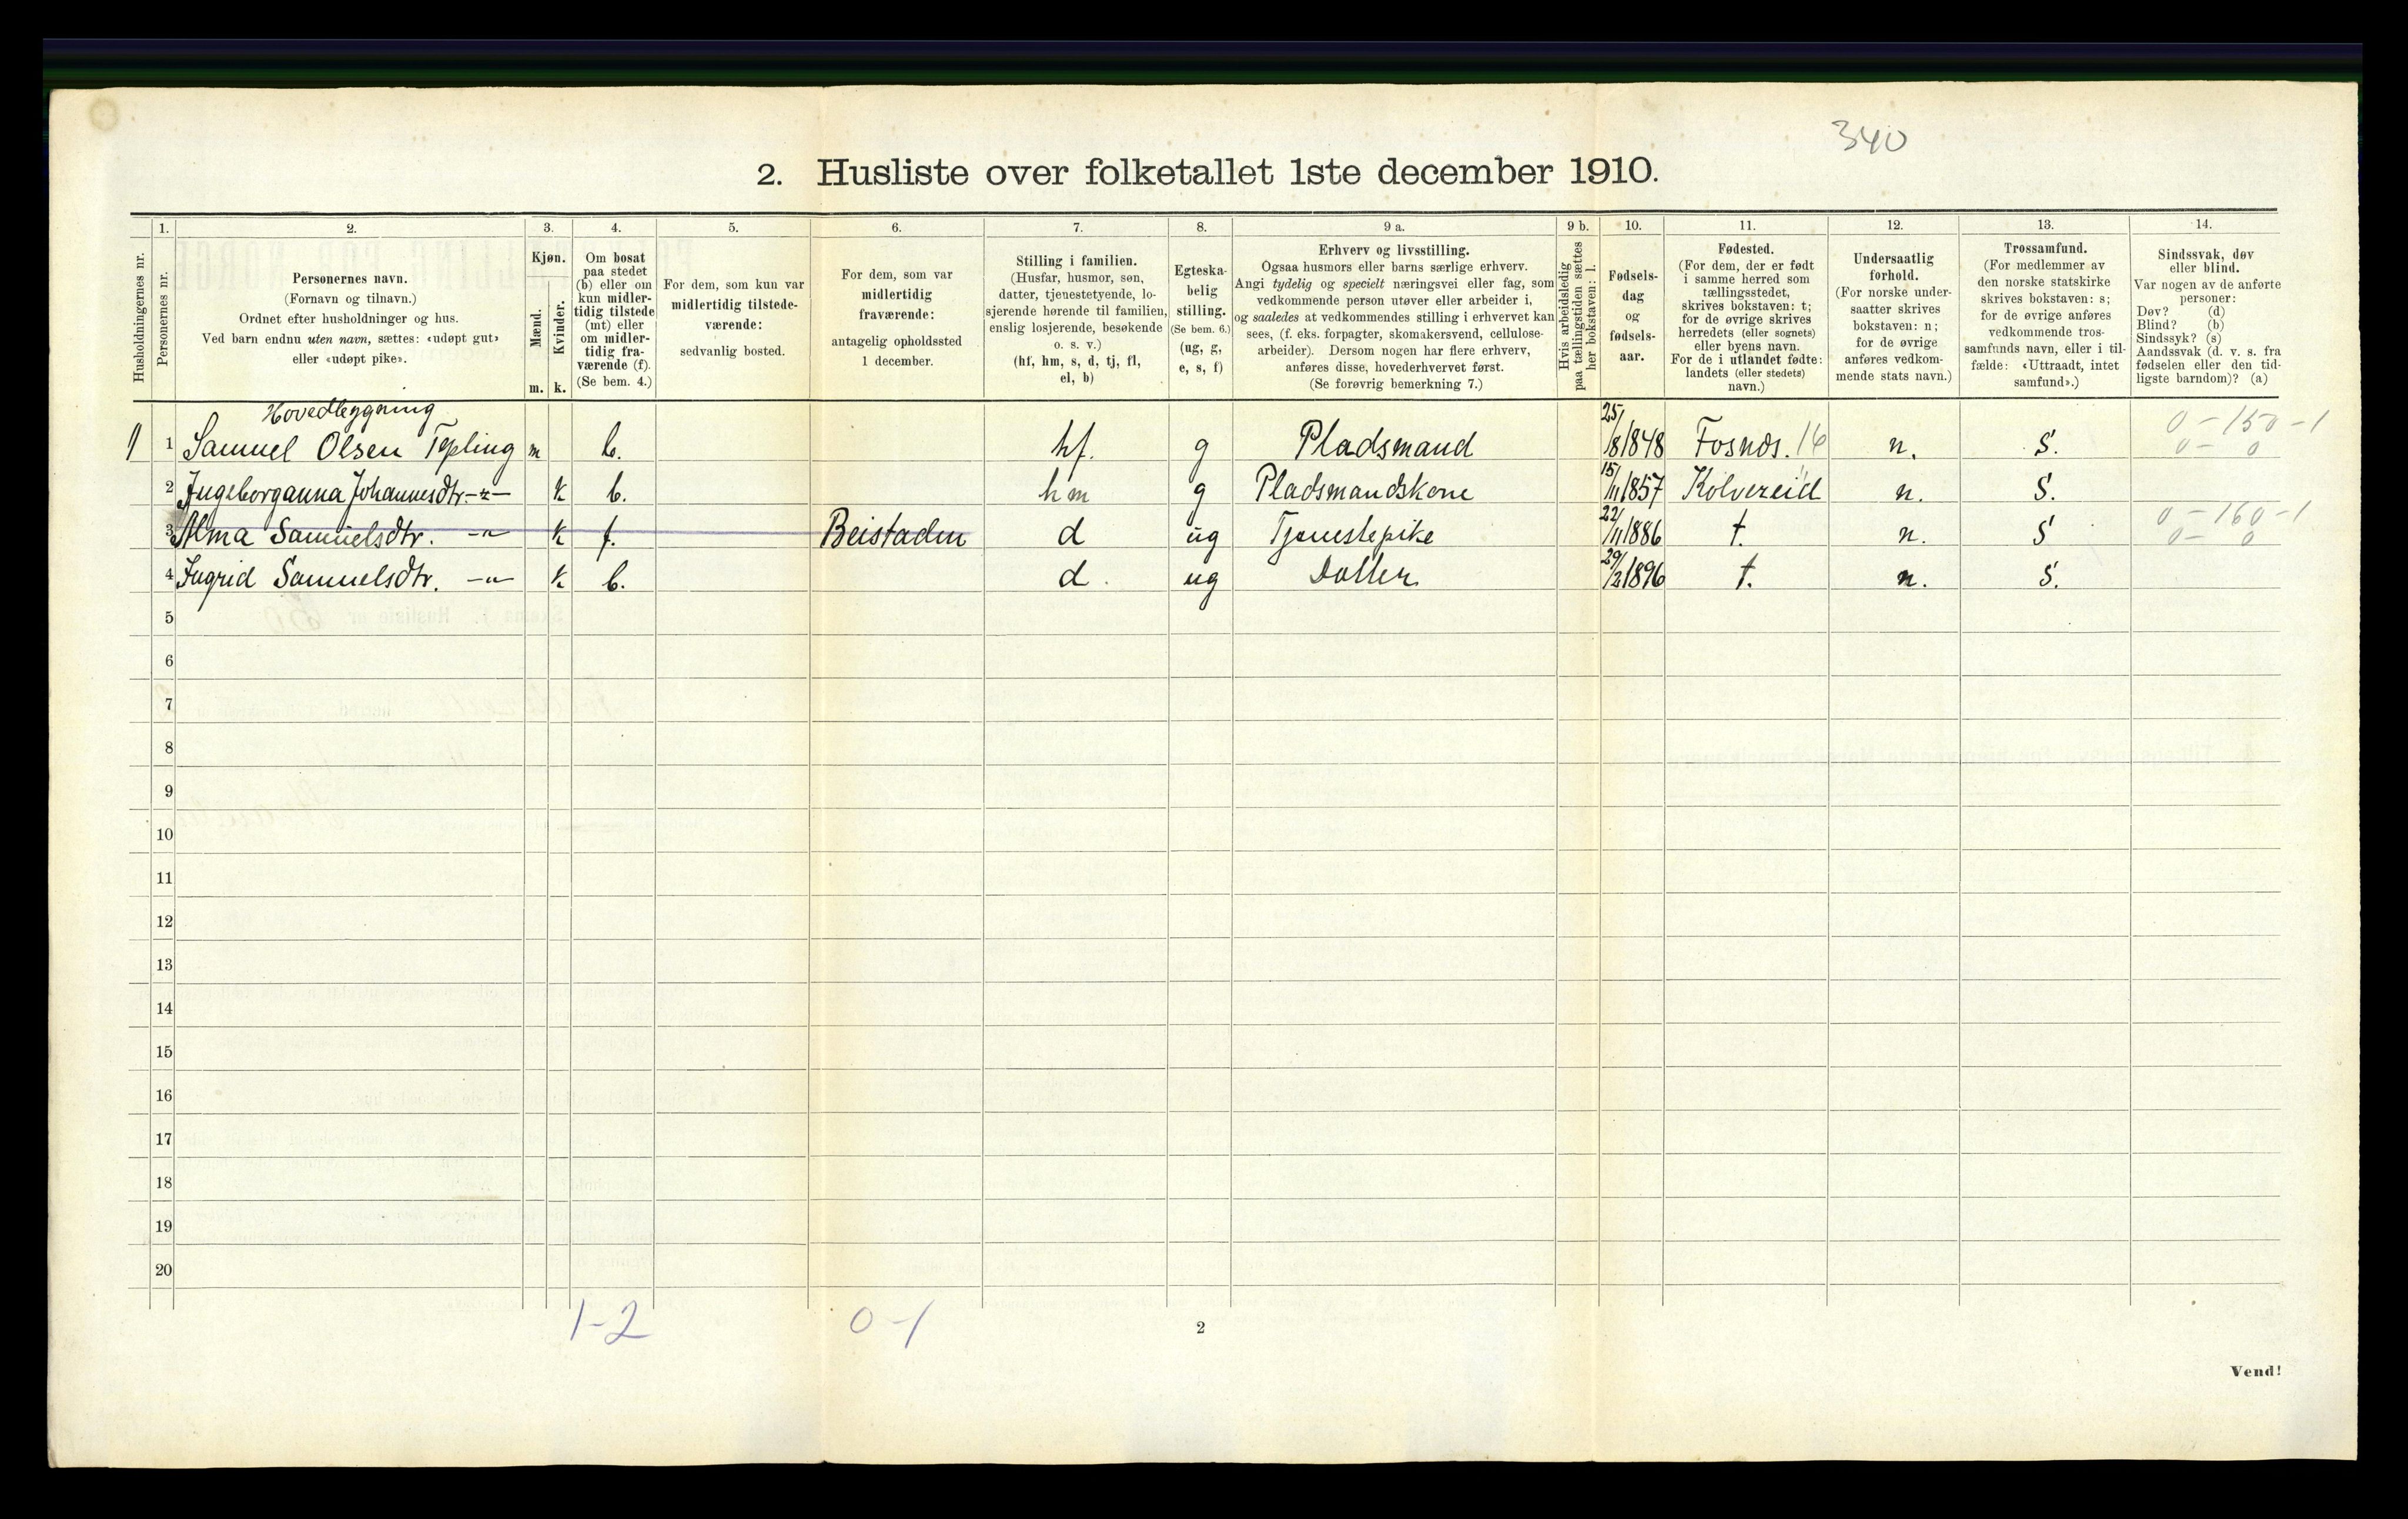 340
2. Husliste over folketallet 1ste december 1910.
1. 2. 3. 4. 5. 6. 7. 8. 9 a. 9 b. 10. 11. 12. 13. 14.
Husholdningernes nr.
Personernes nr.
Personernes navn.
(Fornavn og tilnavn.)
Ordnet efter husholdninger og hus.
Ved barn endnu uten navn, sættes: «udøpt gut»
eller «udøpt pike».
Kjøn.
Mænd.
Kvinder.
m. k.
Om bosat
paa stedet
(b) eller om
kun midler-
tidig tilstede
(mt) eller
om midler-
tidig fra-
værende (f).
(Se bem. 4.)
For dem, som kun var
midlertidig tilstede-
værende:
sedvanlig bosted.
For dem, som var
midlertidig
fraværende:
antagelig opholdssted
1 december.
Stilling i familien.
(Husfar, husmor, søn,
datter, tjenestetyende, lo-
sjerende hørende til familien,
enslig losjerende, besøkende
o. s. v.)
(hf, hm, s, d, tj, fl,
el, b)
Egteska-
belig
stilling.
(Se bem. 6.)
(ug, g,
e, s, f)
Erhverv og livsstilling.
Ogsaa husmors eller barns særlige erhverv.
Angi tydelig og specielt næringsvei eller fag, som
vedkommende person utøver eller arbeider i,
og saaledes at vedkommendes stilling i erhvervet kan
sees, (f. eks. forpagter, skomakersvend, cellulose-
arbeider). Dersom nogen har flere erhverv,
anføres disse, hovederhvervet først.
(Se forøvrig bemerkning 7.)
Hvis arbeidsledig
paa tællingstiden sættes
her bokstaven: l.
Fødsels-
dag
og
fødsels-
aar.
Fødested.
(For dem, der er født
i samme herred som
tællingsstedet,
skrives bokstaven: t;
for de øvrige skrives
herredets (eller sognets)
eller byens navn.
For de i utlandet fødte:
landets (eller stedets)
navn.)
Undersaatlig
forhold.
(For norske under-
saatter skrives
bokstaven: n;
for de øvrige
anføres vedkom-
mende stats navn.)
Trossamfund.
(For medlemmer av
den norske statskirke
skrives bokstaven: s;
for de øvrige anføres
vedkommende tros-
samfunds navn, eller i til-
fælde: «Uttraadt, intet
samfund».)
Sindssvak, døv
eller blind.
Var nogen av de anførte
personer:
Døv? (d)
Blind? (b)
Sindssyk? (s)
Aandssvak (d. v. s. fra
fødselen eller den tid-
ligste barndom)? (a)
Hovedbygning
1 1 Samuel Olsen Tepling m b. hf. g Pladsmand 25/8 1848 Fosnæs. 16 n. S. 0 - 150 - 1
0 - 0
2 Ingeborganna Johannesdtr. -"- k b. hm g Pladsmandskone 15/11 1857 Kolvereid " n. S.
3 Alma Samuelsdtr. -"- k f. Beistaden d ug Tjenestepike 22/11 1886 t. n. S 0 - 160 - 1
0 - 0
4 Ingrid Samuelsdtr. -"- k b. d. ug Datter 29/2 1896 t. n. S.
5
6
7
8
9
10
11
12
13
14
15
16
17
18
19
20
1-2 0-1
2
Vend!